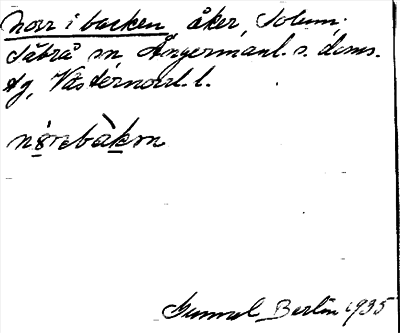 Norr i backen, åker, Solum,
Säbrå sn, Ångermanl. s. doms.
tg, Västernorrl. l.
nörebàkɛn
Gunnel Berlin 1935